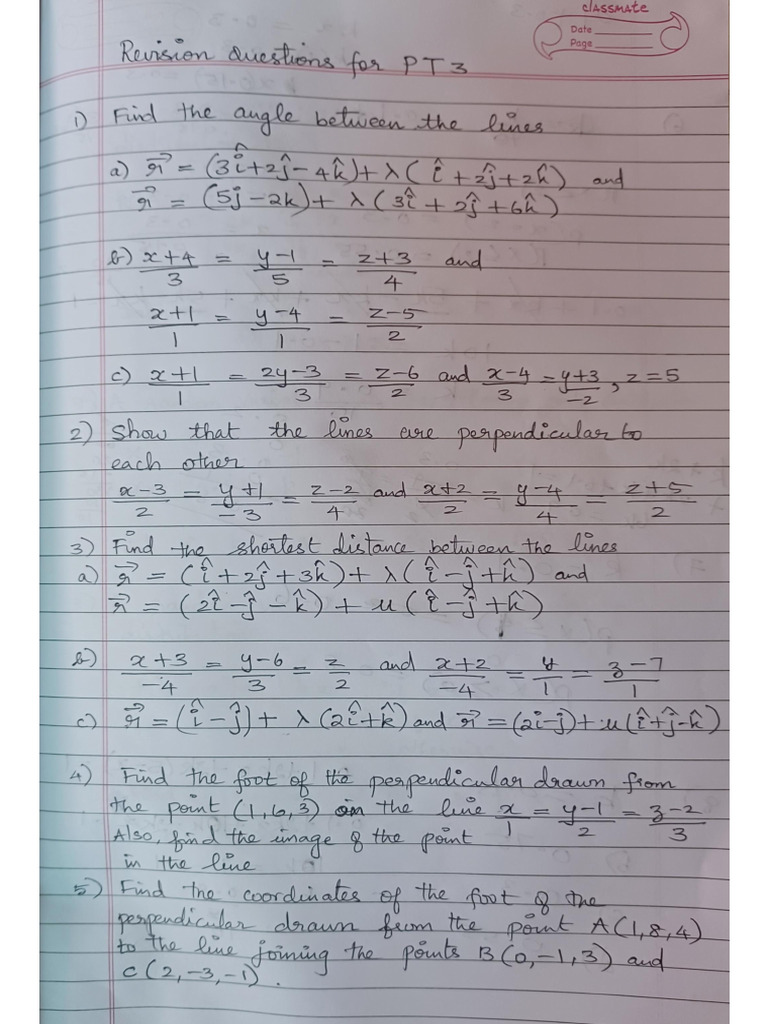 classmate
Date
Page
Revision Questions for PT3
1) Find the angle between the lines
a) r⃗ = (3î+2ĵ−4k̂)+λ(î+2ĵ+2k̂) and
r⃗ = (5j−2k)+λ(3î+2ĵ+6k̂)
b) (x+4)/3 = (y−1)/5 = (z+3)/4 and
(x+1)/1 = (y−4)/1 = (z−5)/2
c) (x+1)/1 = (2y−3)/3 = (z−6)/2 and (x−4)/3 = (y+3)/−2, z=5
2) Show that the lines are perpendicular to
each other
(x−3)/2 = (y+1)/−3 = (z−2)/4 and (x+2)/2 = (y−4)/4 = (z+5)/2
3) Find the shortest distance between the lines
a) r⃗ = (î+2ĵ+3k̂)+λ(î−ĵ+k̂) and
r⃗ = (2î−ĵ−k̂)+μ(î−ĵ+k̂)
b) (x+3)/−4 = (y−6)/3 = z/2 and (x+2)/−4 = y/1 = (z−7)/1
c) r⃗ = (î−ĵ)+λ(2î+k̂) and r⃗ = (2i−j)+μ(î+ĵ−k̂)
4) Find the foot of the perpendicular drawn from
the point (1,6,3) on the line x/1 = (y−1)/2 = (z−2)/3
Also, find the image of the point
in the line
5) Find the coordinates of the foot of the
perpendicular drawn from the point A(1,8,4)
to the line joining the points B(0,−1,3) and
C(2,−3,−1).